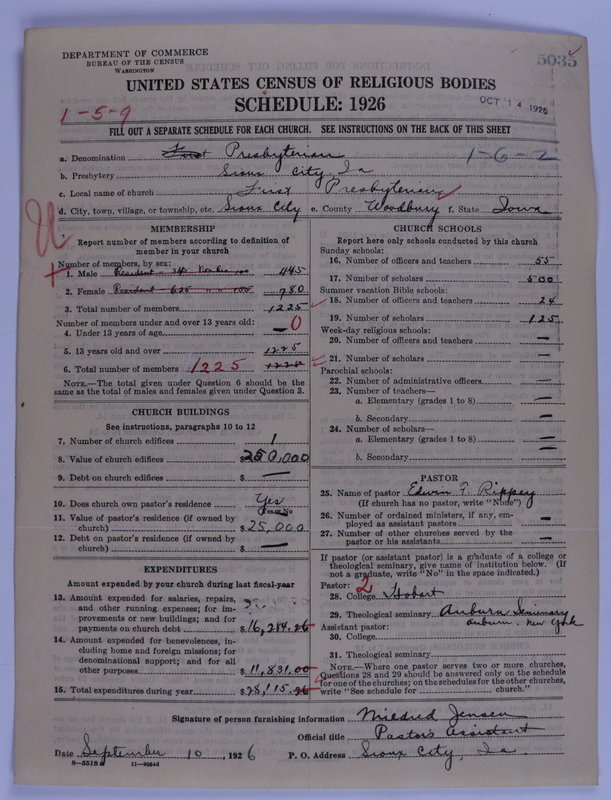 DEPARTMENT OF COMMERCE
BUREAU OF THE CENSUS
WASHINGTON
5035
UNITED STATES CENSUS OF RELIGIOUS BODIES
SCHEDULE: 1926
OCT 14 1926
1-5-9
FILL OUT A SEPARATE SCHEDULE FOR EACH CHURCH. SEE INSTRUCTIONS ON THE BACK OF THIS SHEET
a. Denomination First Presbyterian 1-6-2
b. Presbytery Sioux City, Ia
c. Local name of church First Presbyterian
d. City, town, village, or township, etc. Sioux City e. County Woodbury f. State Iowa
MEMBERSHIP
Report number of members according to definition of member in your church
Number of members, by sex:
1. Male 445
2. Female 780
3. Total number of members 1225
Number of members under and over 13 years old:
4. Under 13 years of age — 0
5. 13 years old and over 1225
6. Total number of members 1225 1225
NOTE.—The total given under Question 6 should be the same as the total of males and females given under Question 3.
CHURCH BUILDINGS
See instructions, paragraphs 10 to 12
7. Number of church edifices 1
8. Value of church edifices $250,000
9. Debt on church edifices $ —
10. Does church own pastor's residence Yes
Yes or No
11. Value of pastor's residence (if owned by church) $25,000
12. Debt on pastor's residence (if owned by church) $ —
EXPENDITURES
Amount expended by your church during last fiscal year
13. Amount expended for salaries, repairs, and other running expenses; for improvements or new buildings; and for payments on church debt $16,284.26
14. Amount expended for benevolences, including home and foreign missions; for denominational support; and for all other purposes $11,831.00
15. Total expenditures during year $28,115.26
CHURCH SCHOOLS
Report here only schools conducted by this church
Sunday schools:
16. Number of officers and teachers 55
17. Number of scholars 500
Summer vacation Bible schools:
18. Number of officers and teachers 24
19. Number of scholars 125
Week-day religious schools:
20. Number of officers and teachers —
21. Number of scholars —
Parochial schools:
22. Number of administrative officers —
23. Number of teachers—
a. Elementary (grades 1 to 8) —
b. Secondary —
24. Number of scholars—
a. Elementary (grades 1 to 8) —
b. Secondary —
PASTOR
25. Name of pastor Edwin F. Rippey
(If church has no pastor, write "None")
26. Number of ordained ministers, if any, employed as assistant pastors —
27. Number of other churches served by the pastor or his assistants —
If pastor (or assistant pastor) is a graduate of a college or theological seminary, give name of institution below. (If not a graduate, write "No" in the space indicated.)
Pastor: 2
28. College Hobart
29. Theological seminary Auburn Seminary
Auburn, New York
Assistant pastor:
30. College
31. Theological seminary
NOTE.—Where one pastor serves two or more churches, Questions 28 and 29 should be answered only on the schedule for one of the churches; on the schedules for the other churches, write "See schedule for church."
Signature of person furnishing information Mildred Jensen
Official title Pastors Assistant
Date September 10, 1926 P. O. Address Sioux City, Ia.
8-5518